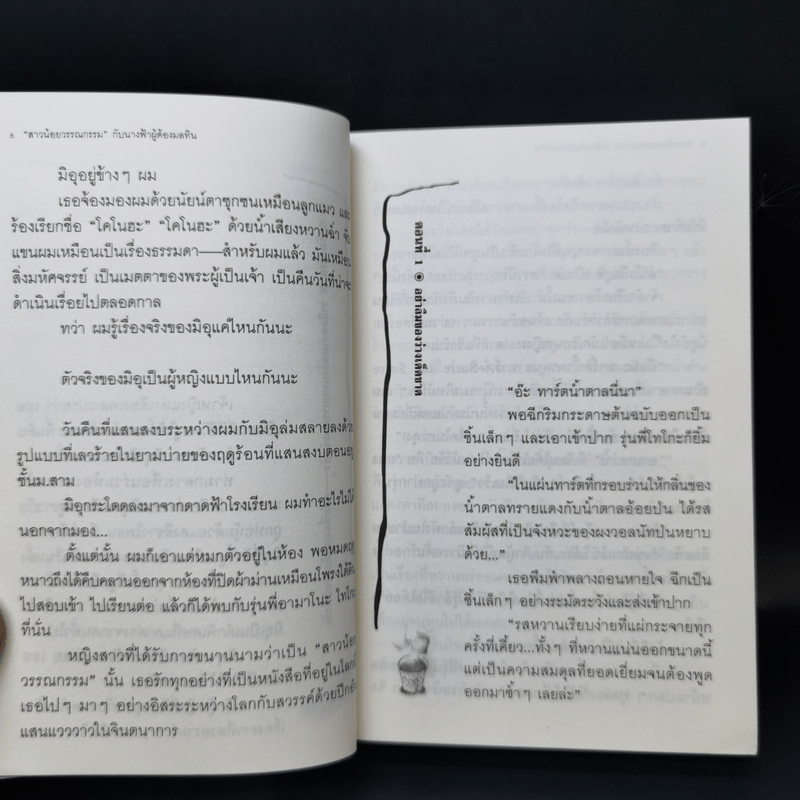 ๖ "สาวน้อยวรรณกรรม" กับนางฟ้าผู้ต้องมลทิน
มิอุอยู่ข้างๆ ผม
เธอจ้องมองผมด้วยนัยน์ตาซุกซนเหมือนลูกแมว และ
ร้องเรียกชื่อ "โคโนฮะ" "โคโนฮะ" ด้วยน้ำเสียงหวานฉ่ำ
แขนผมเหมือนเป็นเรื่องธรรมดา—สำหรับผมแล้ว มันเหมือน
สิ่งมหัศจรรย์ เป็นเมตตาของพระผู้เป็นเจ้า เป็นคืนวันที่น่าจะ
ดำเนินเรื่อยไปตลอดกาล
ทว่า ผมรู้เรื่องจริงของมิอุแค่ไหนกันนะ
ตัวจริงของมิอุเป็นผู้หญิงแบบไหนกันนะ
วันคืนที่แสนสงบระหว่างผมกับมิอุล่มสลายลงด้วย
รูปแบบที่เลวร้ายในยามบ่ายของฤดูร้อนที่แสนสงบตอนอยู่
ชั้นม.สาม
มิอุกระโดดลงมาจากดาดฟ้าโรงเรียน ผมทำอะไรไม่ได้
นอกจากมอง...
ตั้งแต่นั้น ผมก็เอาแต่หมกตัวอยู่ในห้อง พอหมดฤดู
หนาวถึงได้คืบคลานออกจากห้องที่ปิดผ้าม่านเหมือนโพรงใต้ดิน
ไปสอบเข้า ไปเรียนต่อ แล้วก็ได้พบกับรุ่นพี่อามาโนะ โทโกะ
ที่นั่น
หญิงสาวที่ได้รับการขนานนามว่าเป็น "สาวน้อย
วรรณกรรม" นั้น เธอรักทุกอย่างที่เป็นหนังสือที่อยู่ในโลกนี้
เธอไปๆ มาๆ อย่างอิสระระหว่างโลกกับสวรรค์ด้วยปีกอัน
แสนแวววาวในจินตนาการ
ตอนที่ 1 อย่าลืมของว่างเด็ดขาด
"อ๊ะ ทาร์ตน้ำตาลนี่นา"
พอฉีกริมกระดาษต้นฉบับออกเป็น
ชิ้นเล็กๆ และเอาเข้าปาก รุ่นพี่โทโกะก็ยิ้ม
อย่างยินดี
"ในแผ่นทาร์ตที่กรอบร่วนให้กลิ่นของ
น้ำตาลทรายแดงกับน้ำตาลอ้อยป่น ได้รส
สัมผัสที่เป็นจังหวะของผงวอลนัทป่นหยาบ
ด้วย..."
เธอพึมพำพลางถอนหายใจ ฉีกเป็น
ชิ้นเล็กๆ อย่างระมัดระวังและส่งเข้าปาก
"รสหวานเรียบง่ายที่แผ่กระจายทุก
ครั้งที่เคี้ยว...ทั้งๆ ที่หวานแน่นออกขนาดนี้
แต่เป็นความสมดุลที่ยอดเยี่ยมจนต้องพูด
ออกมาซ้ำๆ เลยล่ะ"